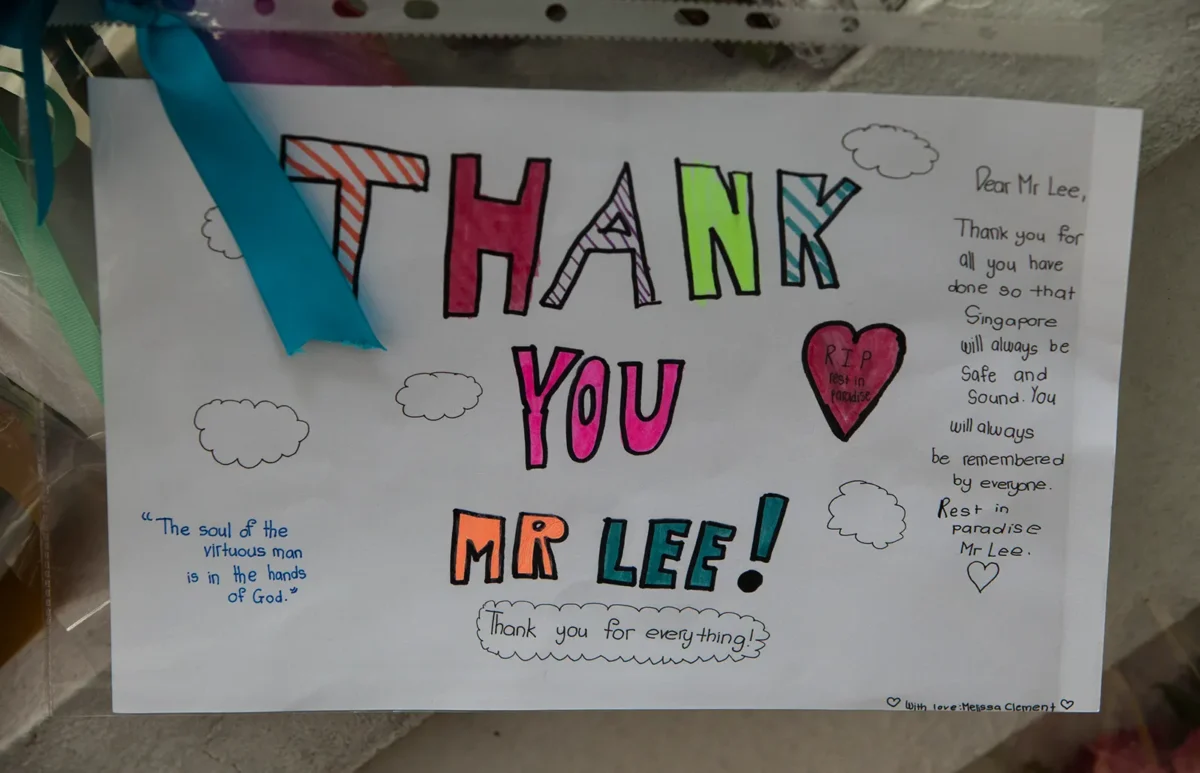 THANK
YOU
MR LEE!
Thank you for everything!
"The soul of the
virtuous man
is in the hands
of God."
RIP
rest in
paradise
Dear Mr Lee,
Thank you for
all you have
done so that
Singapore
will always be
Safe and
Sound. You
will always
be remembered
by everyone.
Rest in
paradise
Mr Lee.
With love: Melissa Clement